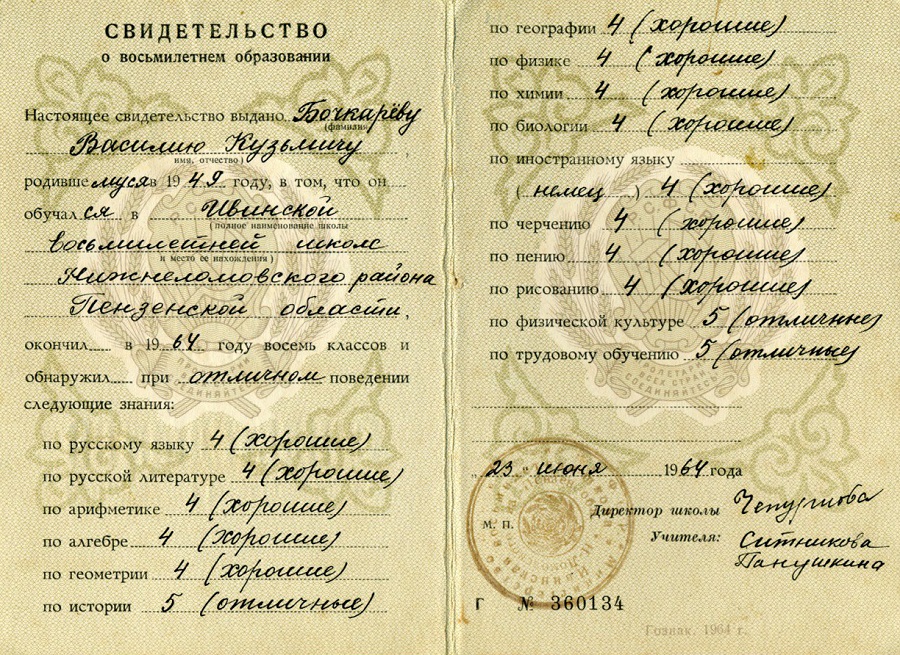 СВИДЕТЕЛЬСТВО
о восьмилетнем образовании
Настоящее свидетельство выдано Бочкарёву
(фамилия)
Василию Кузьмичу
имя, отчество)
родившемуся в 1949 году, в том, что он
обучался в Ивинской
(полное наименование школы
восьмилетней школе
и место ее нахождения)
Нижнеломовского района
Пензенской области,
окончил в 1964 году восемь классов и
обнаружил при отличном поведении
следующие знания:
по русскому языку 4 (хорошие)
по русской литературе 4 (хорошие)
по арифметике 4 (хорошие)
по алгебре 4 (хорошие)
по геометрии 4 (хорошие)
по истории 5 (отличные)
по географии 4 (хорошие)
по физике 4 (хорошие)
по химии 4 (хорошие)
по биологии 4 (хорошие)
по иностранному языку
(немец) 4 (хорошие)
по черчению 4 (хорошие)
по пению 4 (хорошие)
по рисованию 4 (хорошие)
по физической культуре 5 (отличные)
по трудовому обучению 5 (отличные)
„23" июня 1964 года
М. П.
Директор школы
Учителя: Ситникова
Панушкина
Г № 360134
Гознак. 1964 г.